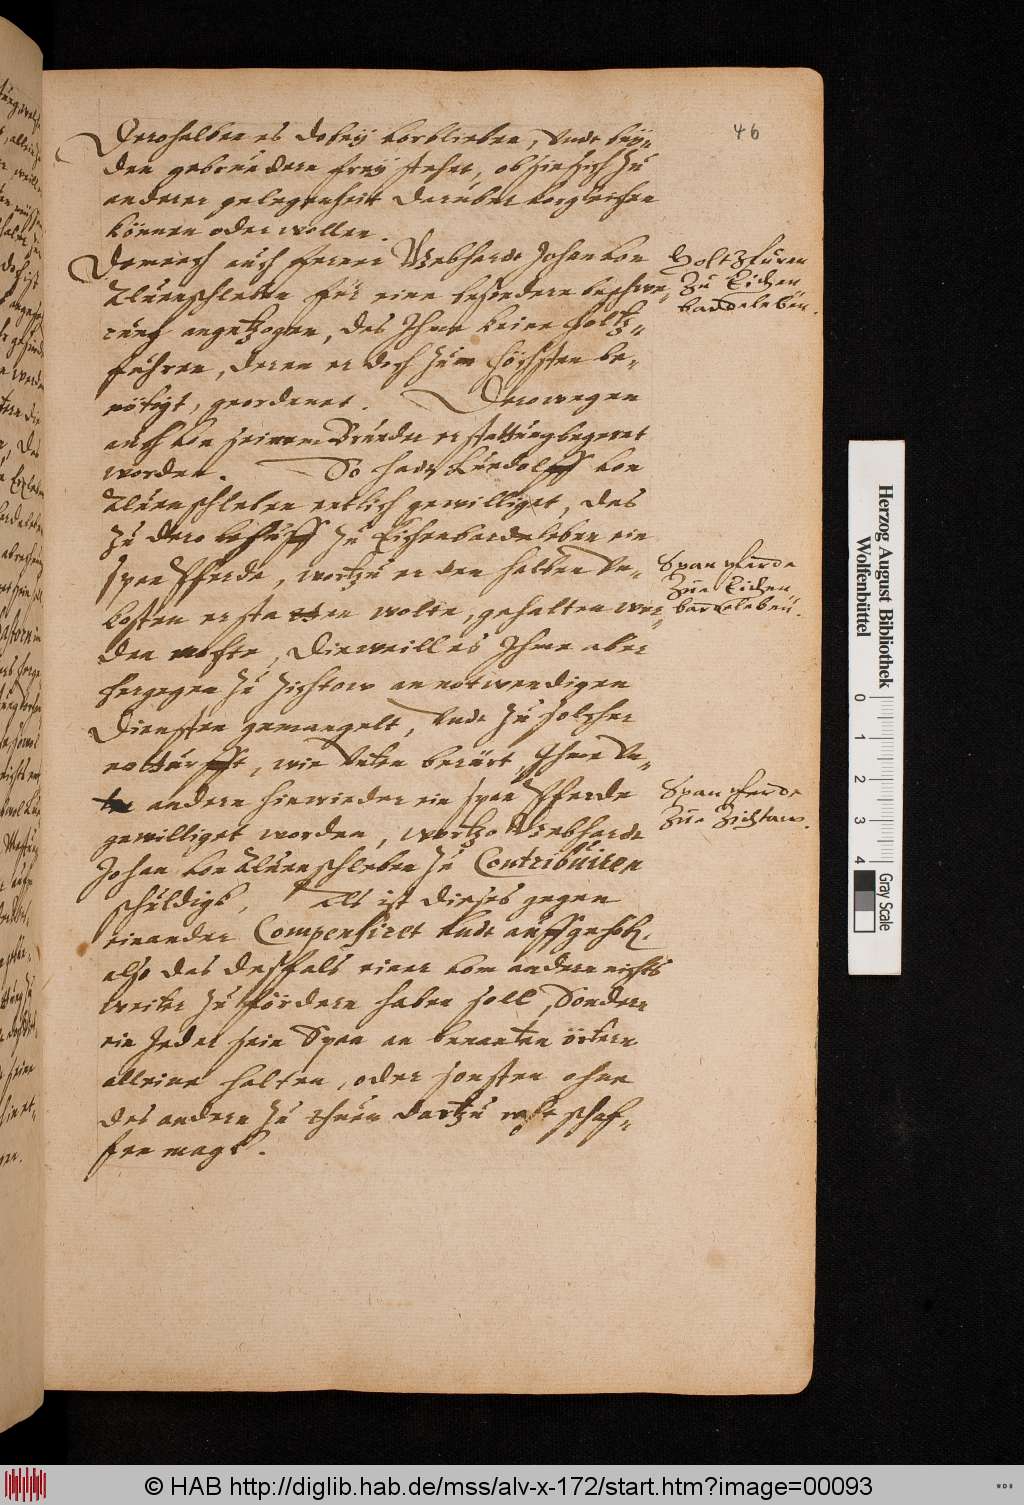 46
Derohalben es dabej vorblieben, Undt bey-
den gebrudern frey stehet, ob sie sich zu
anderer gelegenheit daruber vergleichen
können oder wollen.
Demnach auch ferner Gebhardt Johan von
Aluenschleben für eine besondere beschwe-
rung angetzogen, das Ihme keine holtz-
fuhren, deren er doch zum höchsten be-
nötigt, geordenet. Derowegen
auch von seinem Bruder erstattung begeret
worden. So hatt Ludolff von
Aluenschleben entlich gewilliget, das
zu dero behuff zu Eichenbardeleben ein
span Pferde, wortzu er den halben Un-
kosten erstatten wolte, gehalten wer-
den mochte, Dieweill es Ihme aber
hergegen zu Zichtow an notwendigen
Diensten gemangelt, Undt zu solcher
notturfft, wie Unten berürt, Ihme
andern hinwieder ein span Pferde
gewilliget worden, wortzo Gebhardt
Johan von Aluenschleben zu Contribuiren
schüldigk, Als ist dieses gegen
einander Compensiret Undt auffgehob,
also das desfals einer vom andern nichts
weiter zu fördern haben soll, Sondern
ein Jeder sein Span an benanten örtern
alleine halten, oder sonsten ohne
des andern zu thuen dartzu raht schaf-
fen magk.
Holtzfuren
zu Eichen
bardeleben.
Span pferde
Zue Eichen
bardeleben.
Span pferde
Zue Zichtaw.
Herzog August Bibliothek
Wolfenbüttel
0 1 2 3 4
Gray Scale
© HAB http://diglib.hab.de/mss/alv-x-172/start.htm?image=00093